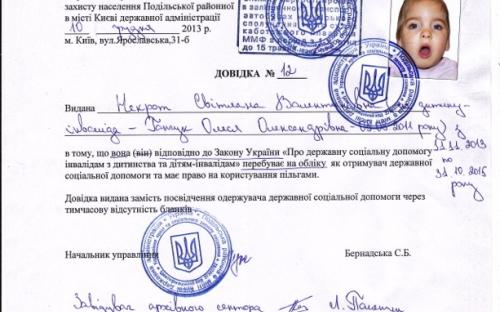 захисту населення Подільської районної
в місті Києві державної адміністрації
10 грудня 2013 р.
м. Київ, вул.Ярославська,31-б
до 15 травня
ДОВІДКА № 12
Видана Некрот Світлана Валентинівна на дитину-
інваліда – Олеся Олександрівна 2011 року) з
31.11.2013
в тому, що вона (він) відповідно до Закону України «Про державну соціальну допомогу
інвалідам з дитинства та дітям-інвалідам» перебуває на обліку як отримувач державної по
соціальної допомоги та має право на користування пільгами.
31.10.2015
року
Довідка видана замість посвідчення одержувача державної соціальної допомоги через
тимчасову відсутність бланків
Начальник управління
Бернадська С.Б.
Завідувач архівного сектора Л.